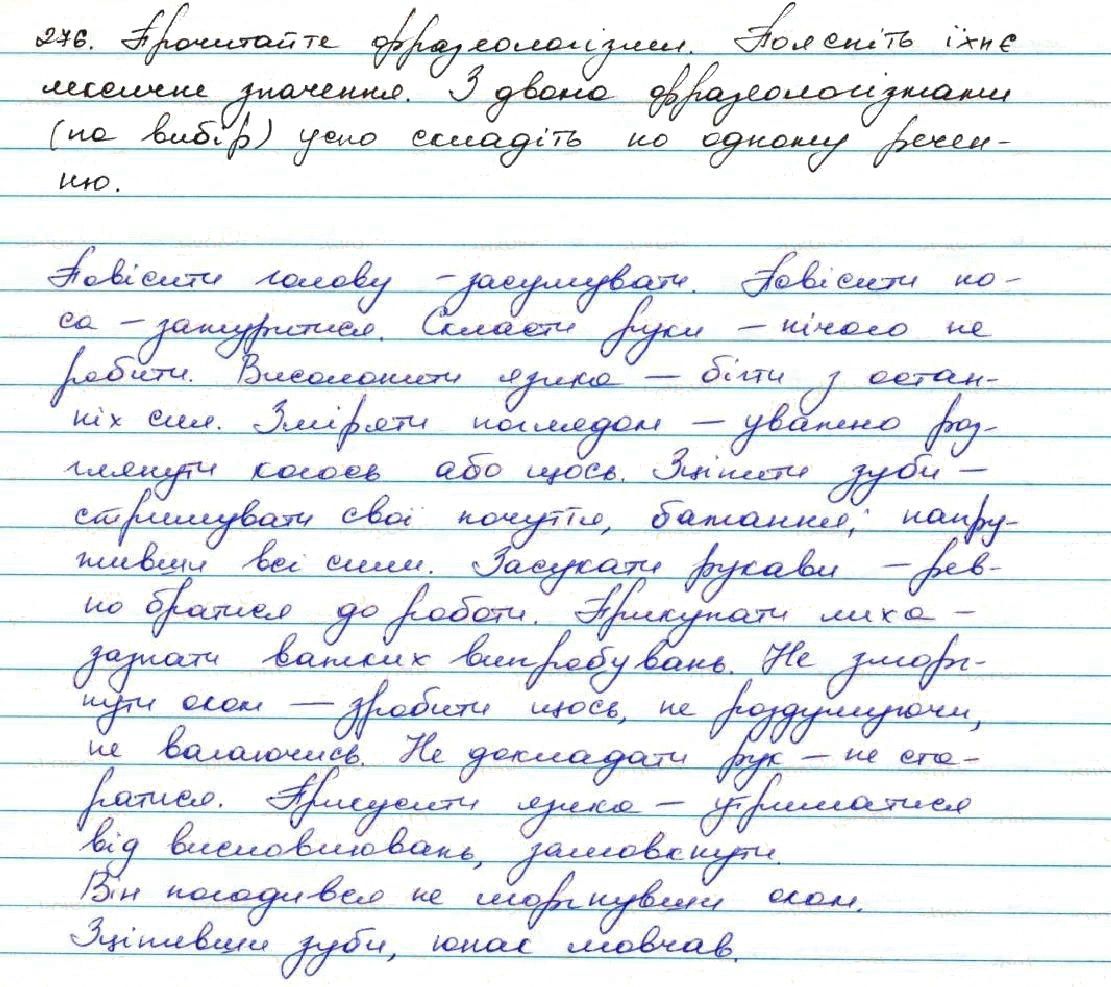 276. Прочитайте фразеологізми. Поясніть їхнє
лексичне значення. З двома фразеологізмами
(на вибір) усно складіть по одному речен-
ню.
Повісити голову - засумувати. Повісити но-
са - зажуритися. Скласти руки - нічого не
робити. Висолопити язика - бігти з остан-
ніх сил. Зміряти поглядом - уважно роз-
глянути когось або щось. Зціпити зуби -
стримувати свої почуття, бажання, напру-
живши всі сили. Засукати рукави - рев-
но братися до роботи. Прикупати лиха -
зазнати важких випробувань. Не зморг-
нути оком - зробити щось, не роздумуючи,
не вагаючись. Не докладати рук - не ста-
ратися. Прикусити язика - утриматися
від висловлювань, замовкнути.
Він погодився не моргнувши оком.
Зціпивши зуби, юнак мовчав.